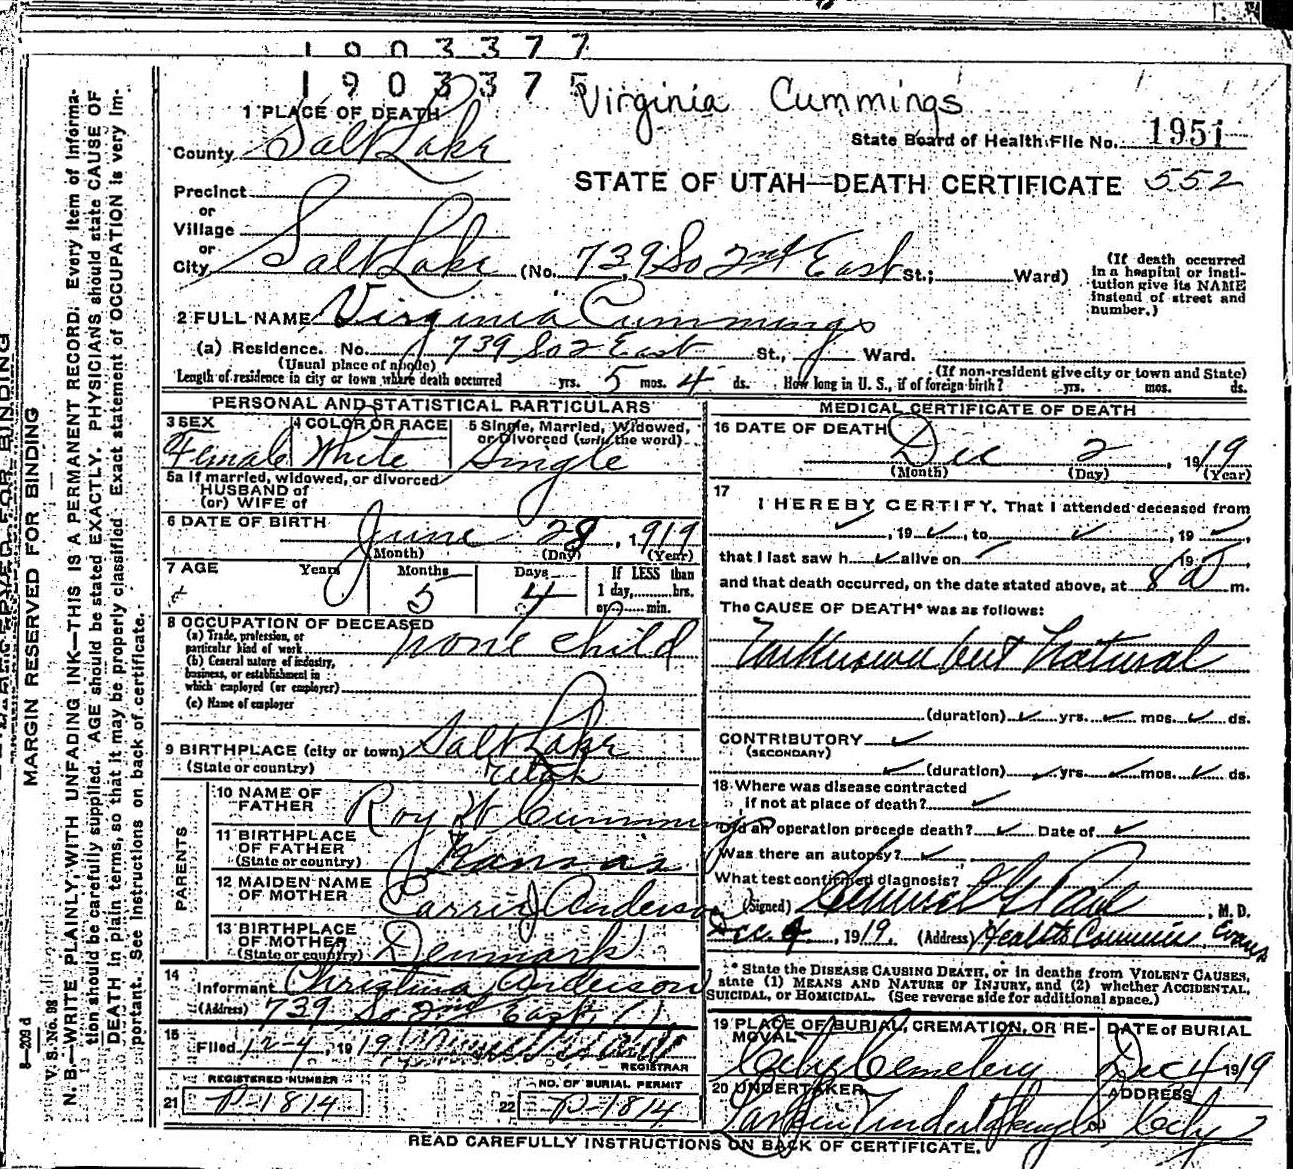 1903377
1903375
Virginia Cummings
1 PLACE OF DEATH
State Board of Health File No. 1951
County Salt Lake
STATE OF UTAH—DEATH CERTIFICATE 552
Precinct
or
Village
or
City Salt Lake (No. 739 So 2nd East St.; Ward)
(If death occurred in a hospital or insti-
tution give its NAME
instead of street and
number.)
2 FULL NAME Virginia Cummings
(a) Residence. No. 739 So 2 East St., Ward.
(Usual place of abode) (If non-resident give city or town and State)
Length of residence in city or town where death occurred yrs. 5 mos. 4 ds. How long in U. S., if of foreign birth? yrs. mos. ds.
PERSONAL AND STATISTICAL PARTICULARS
3 SEX Female
4 COLOR OR RACE White
5 Single, Married, Widowed,
or Divorced (write the word) Single
5a If married, widowed, or divorced
HUSBAND of
(or) WIFE of
6 DATE OF BIRTH June 28, 1919
(Month) (Day) (Year)
7 AGE Years Months 5 Days 4
If LESS than
1 day, hrs.
or min.
8 OCCUPATION OF DECEASED
(a) Trade, profession, or
particular kind of work none child
(b) General nature of industry,
business, or establishment in
which employed (or employer)
(c) Name of employer
9 BIRTHPLACE (city or town) Salt Lake
(State or country) Utah
PARENTS
10 NAME OF
FATHER Roy W Cummings
11 BIRTHPLACE
OF FATHER
(State or country) Kansas
12 MAIDEN NAME
OF MOTHER Carrie J Anderson
13 BIRTHPLACE
OF MOTHER
(State or country) Denmark
14
Informant Christina Anderson
(Address) 739 So 2nd East
15
Filed 12-4, 1919
REGISTRAR
REGISTERED NUMBER
21 P-1814
NO. OF BURIAL PERMIT
22 P-1814
MEDICAL CERTIFICATE OF DEATH
16 DATE OF DEATH Dec 2, 1919
(Month) (Day) (Year)
17
I HEREBY CERTIFY, That I attended deceased from
, 19 , to , 19 ,
that I last saw h alive on 19
and that death occurred, on the date stated above, at 8 a m.
The CAUSE OF DEATH* was as follows:
Unknown but Natural
(duration) yrs. mos. ds.
CONTRIBUTORY
(SECONDARY)
(duration) yrs. mos. ds.
18 Where was disease contracted
if not at place of death?
Did an operation precede death? Date of
Was there an autopsy?
What test confirmed diagnosis?
(Signed) Samuel G Paul, M. D.
Dec. 4, 1919. (Address) Health Commis
* State the DISEASE CAUSING DEATH, or in deaths from VIOLENT CAUSES,
state (1) MEANS AND NATURE OF INJURY, and (2) whether ACCIDENTAL,
SUICIDAL, or HOMICIDAL. (See reverse side for additional space.)
19 PLACE OF BURIAL, CREMATION, OR RE-
MOVAL City Cemetery
DATE of BURIAL
Dec 4 1919
20 UNDERTAKER
ADDRESS
Larkin Undertaking Co City
READ CAREFULLY INSTRUCTIONS ON BACK OF CERTIFICATE.
MARGIN RESERVED FOR BINDING
V. S. No. 98
N. B.—WRITE PLAINLY, WITH UNFADING INK—THIS IS A PERMANENT RECORD. Every item of informa-
tion should be carefully supplied. AGE should be stated EXACTLY. PHYSICIANS should state CAUSE OF
DEATH in plain terms, so that it may be properly classified. Exact statement of OCCUPATION is very im-
portant. See instructions on back of certificate.